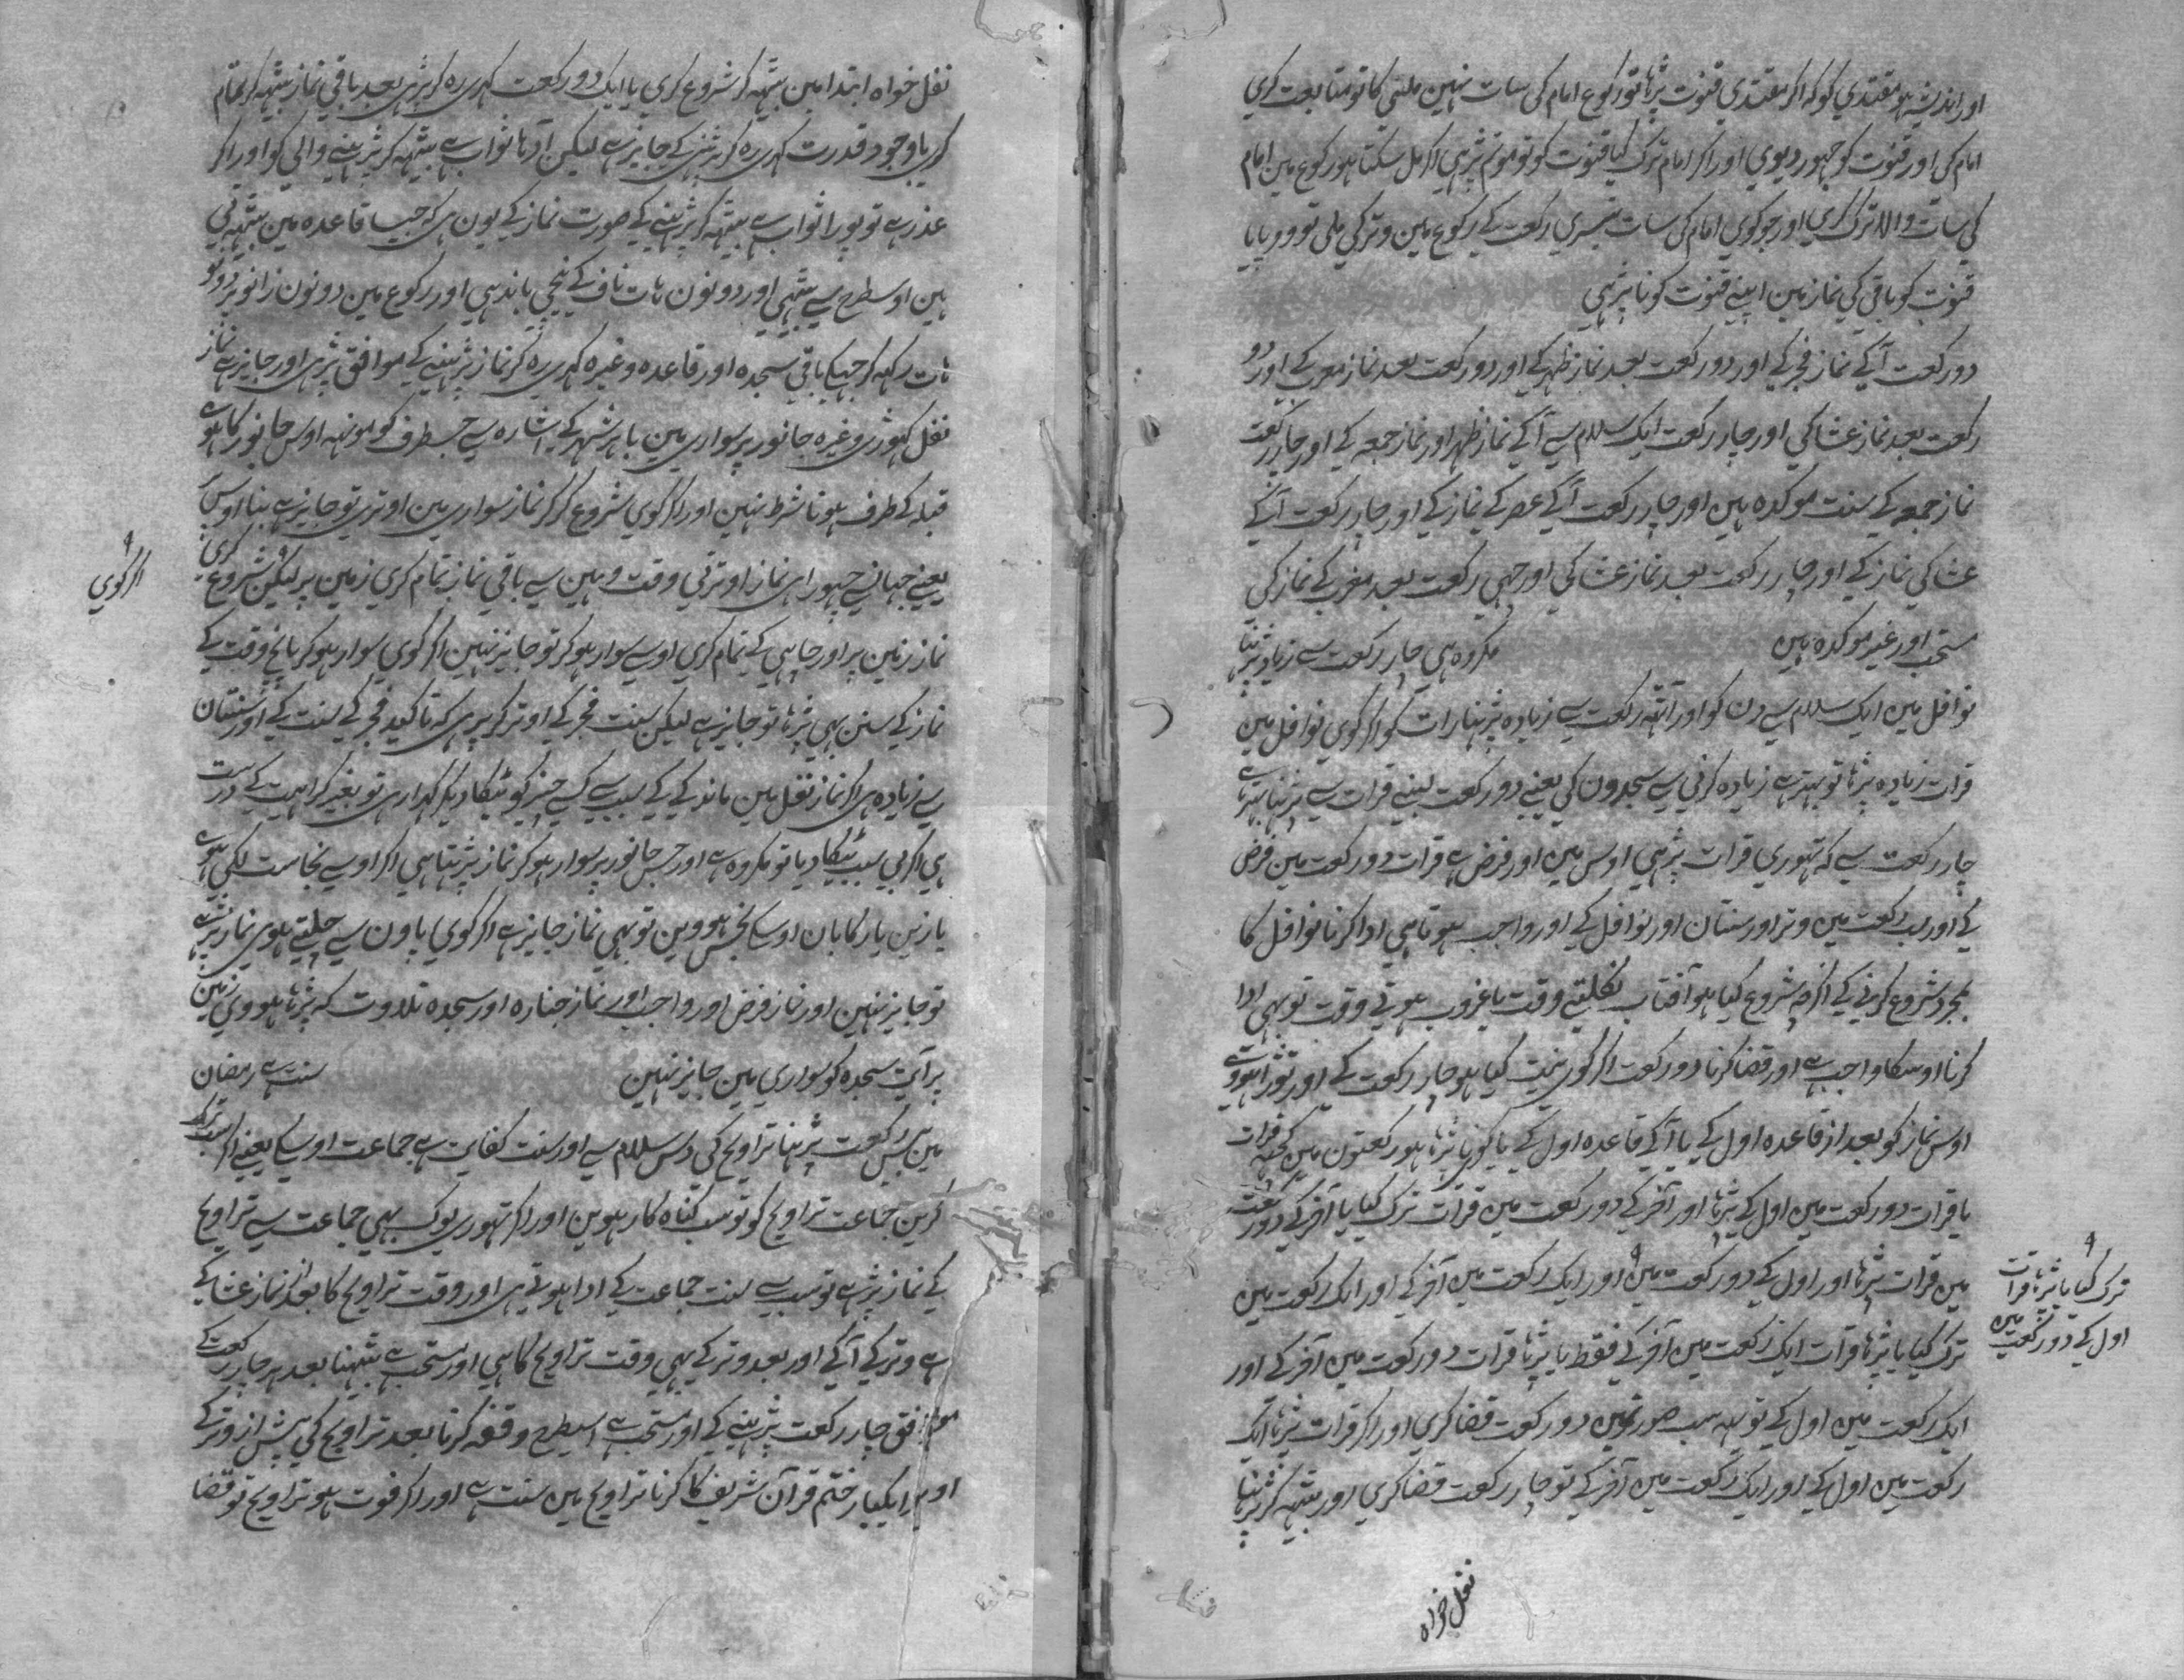 اور اندیشہ ہو مقتدی کو کہ اگر مقتدی قنوت پڑھا تو رکوع امام کی سات نہین ملتی کا تو متابعت کری
امام کی اور قنوت کو چھوڑ دیوی اور اگر امام ترک کیا قنوت کو تو موتم پڑھی اگر مل سکتا ہو رکوع مین امام
کی سات والا ترک کری اور جو کوی امام کی سات تیسری رکعت کے رکوع مین وتر کی ملی تو وو پایا
قنوت کو باقی کی نماز مین اپنے قنوت کو نا پڑھی
دو رکعت آگے نماز فجر کے اور دو رکعت بعد نماز ظہر کے اور دو رکعت بعد نماز مغرب کے اور دو
رکعت بعد نماز عشا کی اور چار رکعت ایک سلام سے آگے نماز ظہر اور نماز جمعہ کے اور چار رکعت
نماز جمعہ کے سنت موکدہ ہین اور چار رکعت آگے عصر کے نماز کے اور چار رکعت آگے
عشا کی نماز کے اور چار رکعت بعد نماز عشا کی اور چھی رکعت بعد مغرب کے نماز کی
مستحب اور غیر موکدہ ہین مکروہ ہی چار رکعت سے زیاد پڑنا
نوافل مین ایک سلام سے دن کو اور آٹھ رکعت سے زیادہ پڑہنا رات کو اگر کوی نوافل مین
قرات زیادہ پڑھا تو بہتر ہے زیادہ کرنی سے سجدون کی یعنے دو رکعت لنبے قرات سے پڑنا بہتر ہے
چار رکعت سے کہ تہوری قرات پڑہی اوس مین اور فرض ہے قرات دو رکعت مین فرض
کے اور سب رکعت مین وتر اور سنتان اور نوافل کے اور واجب ہوتا ہی ادا کرنا نوافل کا
بمجرد شروع کرنے کے اگرچہ شروع کیا ہو آفتاب نکلتے وقت یا غروب ہوتے وقت تو بہی ادا
کرنا اوسکا واجب ہے اور قضا کرنا دو رکعت اگر کوی نیت کیا ہو چار رکعت کے اور توڑا ہووے
اوس نماز کو بعد از قاعدہ اول کے یا آگے قاعدہ اول کے یا کوی نا پڑھا ہو رکعتون مین کچھ قرات
یا قرات دو رکعت مین اول کے پڑھا اور آخر کے دو رکعت مین قرات ترک کیا یا آخر کے دو رکعت
مین قرات پڑھا اور اول کے دو رکعت مین ۹ اور ایک رکعت مین آخر کے اور ایک رکعت مین
۹ ترک کیا یا پڑھا قرات
اول کے دو رکعت مین
ترک کیا یا پڑھا قرات ایک رکعت مین آخر کے فقط یا پڑھا قرات دو رکعت مین آخر کے اور
ایک رکعت مین اول کے تو یہہ سب صورتین دو رکعت قضا کری اور اگر قرات پڑھا ایک
رکعت مین اول کے اور ایک رکعت مین آخر کے تو چار رکعت قضا کری اور بیٹھ کر پڑہنا
نفل خواہ
نفل خواہ ابتدا مین بیٹھ کر شروع کری یا ایک دو رکعت کہری رہ کر پڑہی بعد باقی نماز بیٹھ کر تمام
کری باوجود قدرت کہری رہ کر پڑہنی کے جایز ہے لیکن آدہا ثواب ہے بیٹھ کر پڑہنے والی کو اور اگر
عذر ہے تو پورا ثواب ہے بیٹھ کر پڑہنے کے صورت نماز کے یون ہی کہ جیسا قاعدہ مین بیٹھتی
ہین اوسطرح سے بیٹھی اور دونون ہات ناف کے نیچی باندہی اور رکوع مین دونون زانو پر دونو
ہات رکہہ کر جہکی باقی سجدہ اور قاعدہ وغیرہ کہری رہ کر نماز پڑہنے کے موافق پڑہی اور جایز ہے نماز
نفل گہوڑی وغیرہ جانور پر سواری مین باہر شہر کے اشارہ سے جسطرف کو مونہہ اوس جانور کا ہو
قبلہ کے طرف ہونا شرط نہین اور اگر کوی شروع کر کر نماز سواری مین اوتری تو جایز ہے بنا اوسپر
کری یعنے جہانسے چہوڑا ہی نماز اوترتی وقت وہین سے باقی نماز تمام کری زمین پر لیکن ۹ شروع
۹ اگر کوی
نماز زمین پر اور چاہی کے تمام کری اوسے سوار ہو کر تو جایز نہین اگر کوی سوار ہو کر پانچ وقت کے
نماز کے سنن بہی پڑھا تو جایز ہے لیکن سنت فجر کے اوتر کر پڑہی کہ تاکید فجر کے سنت کے اور سنتان
سے زیادہ ہی اگر نماز نفل مین ماندگی کے سبب سے کسے چیز کو ٹیکا دیکر کہرا رہی تو بغیر کراہیت کے درست
ہی اگر بی سبب ٹیکا دیا تو مکروہ ہے اور جس جانور پر سوار ہو کر نماز پڑہتا ہی اگر اوسے نجاست لگی ہوے
یا زین یا رکابان اوسکے نجس ہووین تو بہی نماز جایز ہے اگر کوی پاون سے چلتے ہوی نماز پڑہے
تو جایز نہین اور نماز فرض اور واجب اور نماز جنازہ اور سجدہ تلاوت کہ پڑھا ہووی زمین
پر آیت سجدہ کو سواری مین جایز نہین سنت ہے رمضان
مین بیس رکعت پڑہنا تراویح کی دس سلام سے اور سنت کفایت ہے جماعت اوسکے یعنے اگر سب ترک
کرین جماعت تراویح کو تو سب گناہ کار ہوین اور اگر تہوری لوک بہی جماعت سے تراویح
کے نماز پڑہے تو سب سے سنت جماعت کے ادا ہوتی ہی اور وقت تراویح کا بعد از نماز عشا کے
ہے وتر کے آگے اور بعد وتر کے بہی وقت تراویح کا ہی اور مستحب ہے بیٹھنا بعد ہر چار رکعت کے
موافق چار رکعت پڑہنے کے اور مستحب ہے اسیطرح وقفہ کرنا بعد تراویح کی پیش از وتر کے
اور ایکبار ختم قرآن شریف کا کرنا تراویح مین سنت ہے اور اگر فوت ہو تراویح تو قضا